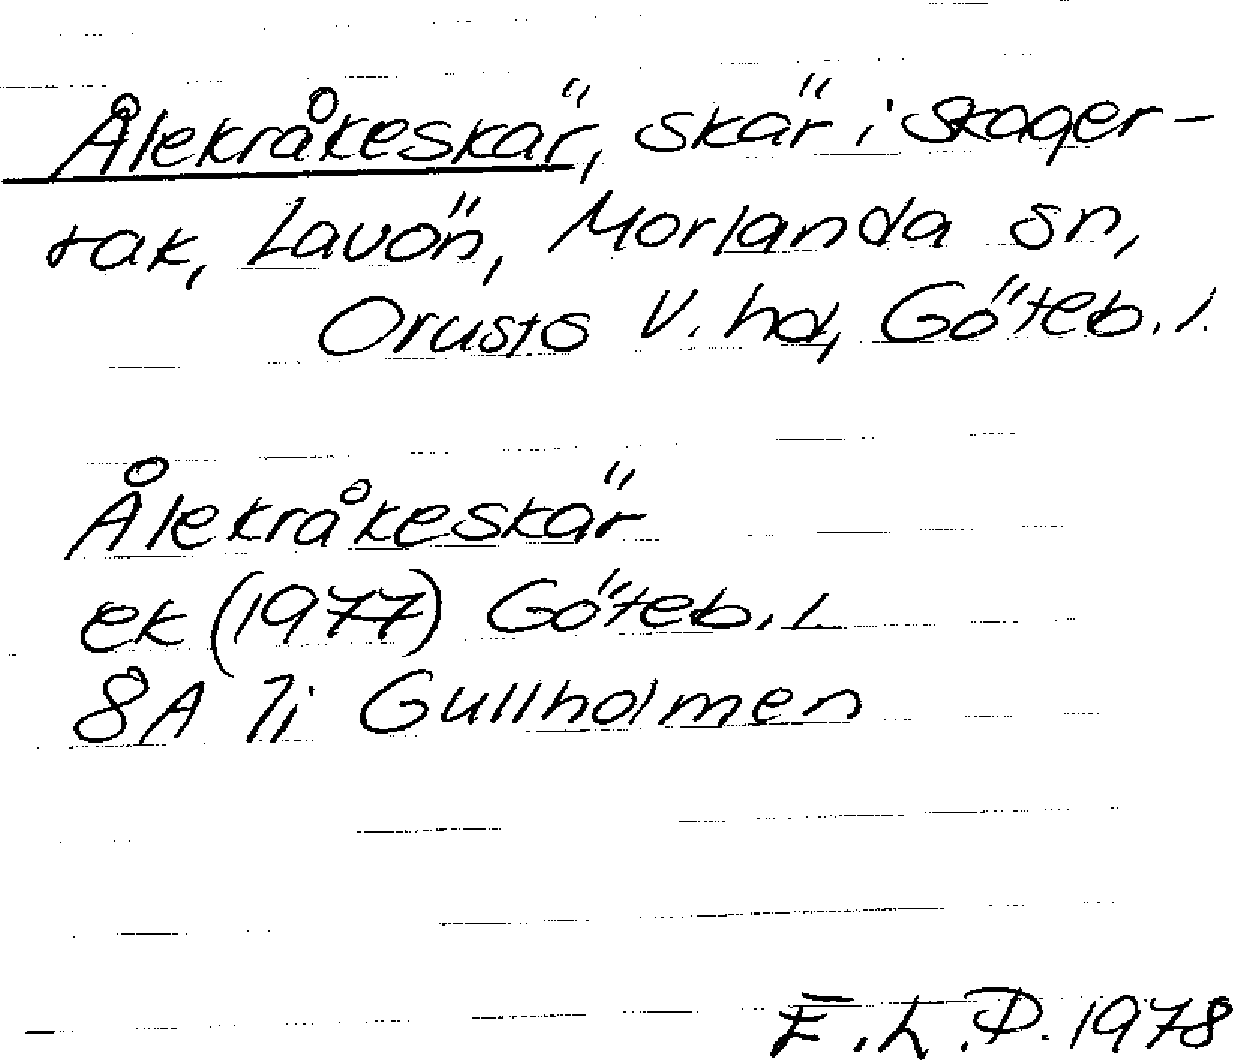 Ålekråkeskär, skär i Skager-
rak, Lavön, Morlanda sn,
Orusts V. hd, Göteb. l.
Ålekråkeskär
ek (1977) Göteb. l.
8A 7i Gullholmen
E. L. D. 1978